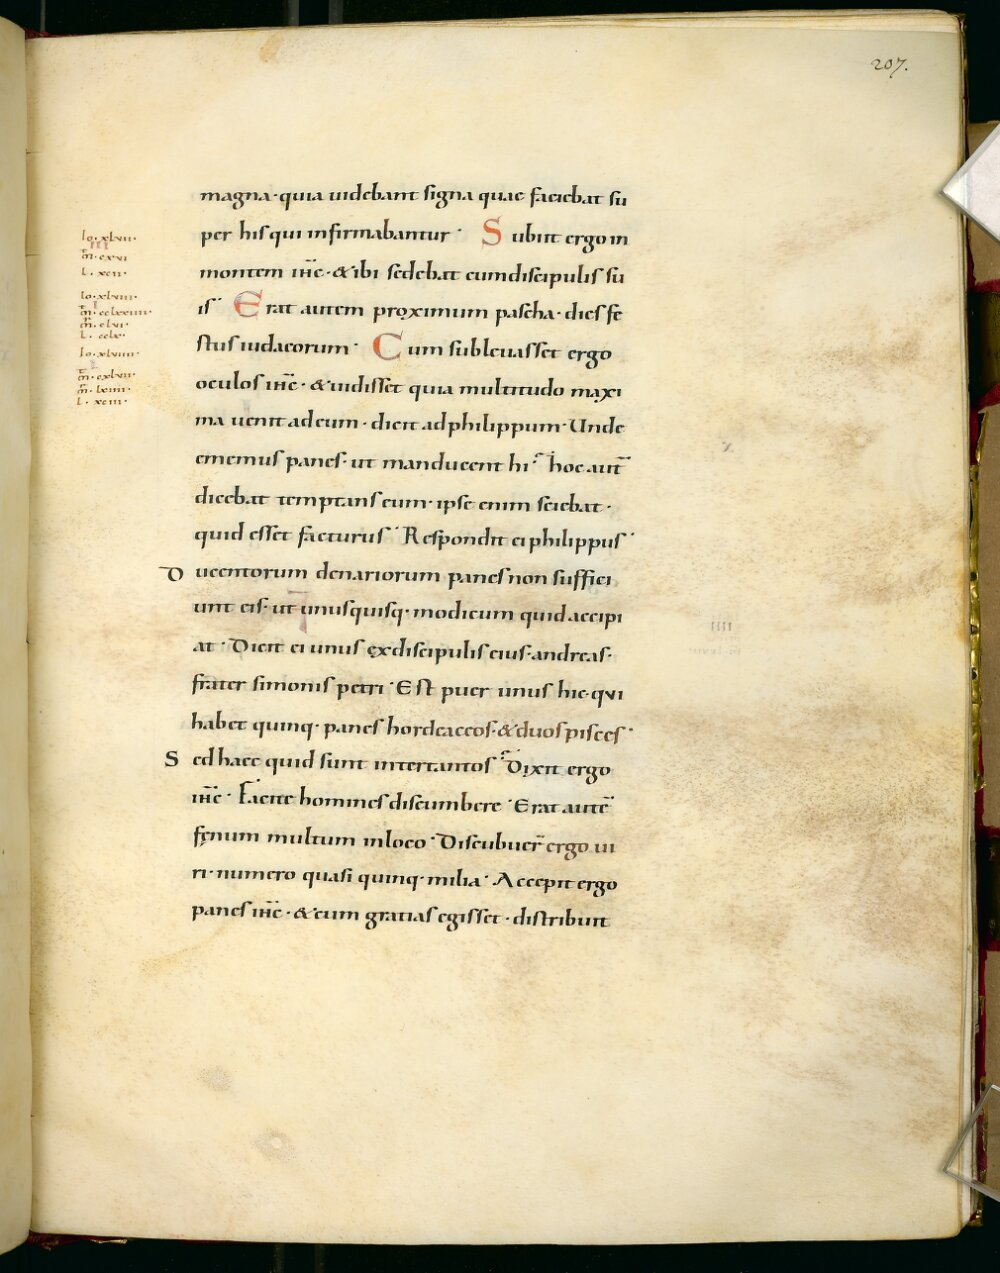 207.
magna· quia uidebant signa quae faciebat su
per his qui infirmabantur· Subiit ergo in
montem ihc̅· & ibi sedebat cum discipulis su
is· Erat autem proximum pascha· dies fe
stus iudaeorum· Cum subleuasset ergo
oculos ihc̅· & uidisset quia multitudo maxi
ma uenit ad eum· dicit ad philippum· Unde
ememus panes· ut manducent hi· hoc aut̅
dicebat temptans eum· ipse enim sciebat·
quid esset facturus· Respondit ei philippus·
Ducentorum denariorum panes non suffici
unt eis· ut unusquisq· modicum quid accipi
at· Dicit ei unus ex discipulis eius· andreas·
frater simonis petri· Est puer unus hic· qui
habet quinq· panes hordeaceos· & duos pisces·
Sed haec quid sunt inter tantos· Dixit ergo
ihc̅· Facite homines discumbere· Erat aute̅
fęnum multum in loco· Discubuer̅ ergo ui
ri· numero quasi quinq· milia· Accepit ergo
panes ihc̅· & cum gratias egisset· distribuit
Io· xlvii·
m̅· cxvi
L· xcii·
Io· xlviii·
m̅· cclxxiiii·
m̅r· clvi·
L· cclx·
Io· xlviiii·
m̅· cxlvii·
m̅r· lxiiii·
L· xciii·